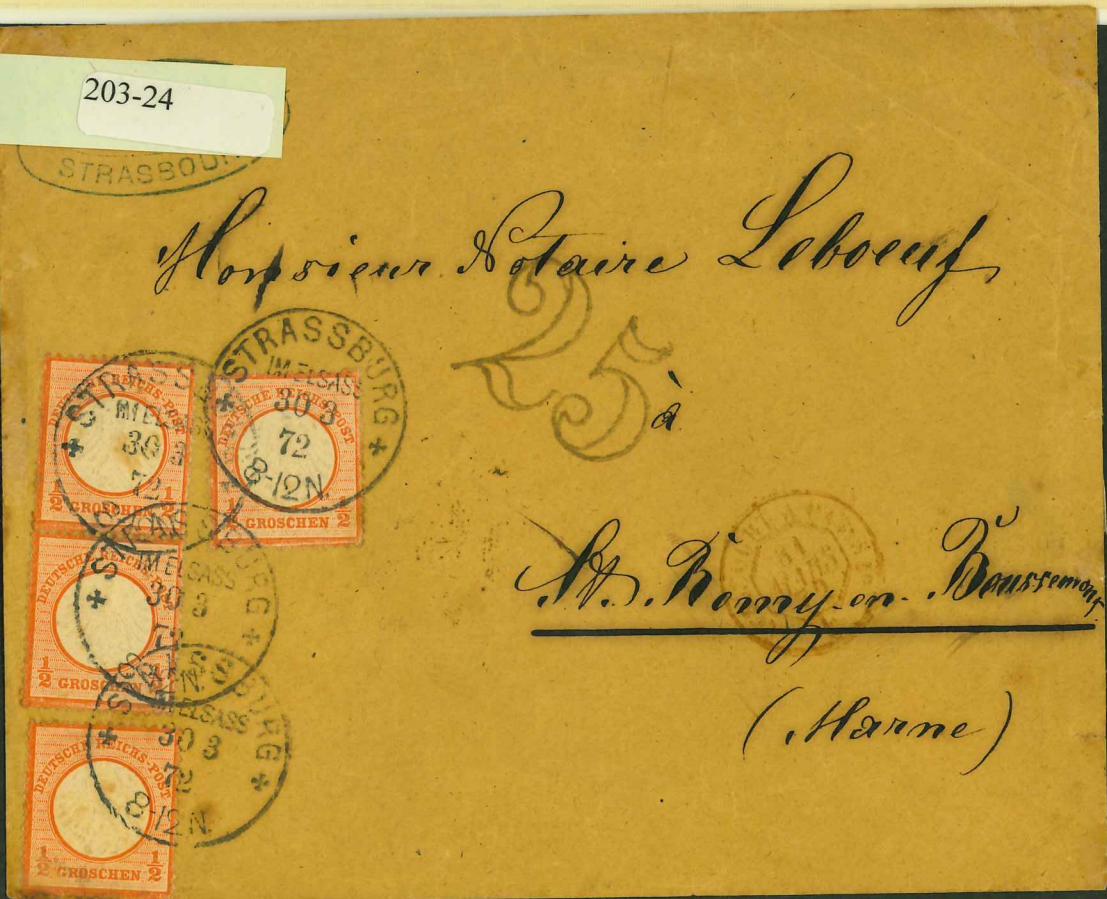 203-24
STRASBOU
Monsieur Notaire Leboeuf
25
à
St. Remy-en-Boussemont
(Marne)
STRASSBURG
IM ELSASS
30 3
72
8-12 N.
DEUTSCHE REICHS-POST
1/2 GROSCHEN 1/2
STRASSBURG
IM ELSASS
30 3
72
DEUTSCHE REICHS-POST
1/2 GROSCHEN 1/2
STRASSBURG
IM ELSASS
30 3
72
DEUTSCHE REICHS-POST
1/2 GROSCHEN 1/2
STRASSBURG
IM ELSASS
30 3
72
8-12 N.
DEUTSCHE REICHS-POST
1/2 GROSCHEN 1/2